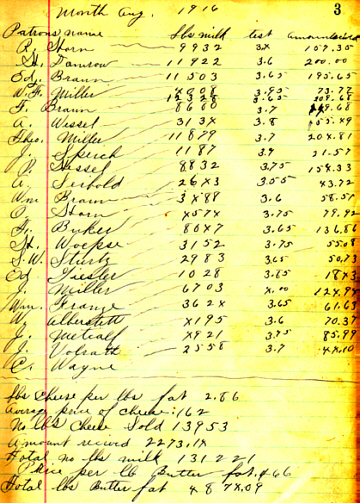 Month Aug. 1916 3
Patrons name lbs milk test amount
R. Storn 9932 3x 157.35
H. Damrow 11922 3.6 200.00
Ed. Braun 11503 3.65 195.65
W.F. Miller 3.95 73.77
F. Braun 8688 3.7
A. Wessel 313x 3.8
Theo. Miller 11879 3.7 204.81
J. 1187 39 21.57
8832 3.75 154.33
A. Seibold 26x3 3.55 43.72
Wm. Braun 3x88 3.6 58.51
O. Storn x57x 3.75 79.92
Fr. Buker 80x7 3.65 136.86
H. Woepse 3152 3.75 55.08
S.W. Sturtz 2983 3.65 50.73
Ed. Tiester 1028 3.85 18x3
J. Miller 6703 x.00 12x.94
Wm. Frange 362x 3.65 61.63
W. Alberstett x195 3.6 70.37
J. Metcalf x921 3.75 85.99
J. Volrath 2558 3.7 4x.10
C. Wayne
lbs Cheese per lbs fat 2.86
Average price of Cheese .162
No lbs Cheese Sold 13953
Amount recievd 2273.1x
Total no lbs milk 131221
Price per lb Butter fat .466
Total lbs Butter fat 487x.09